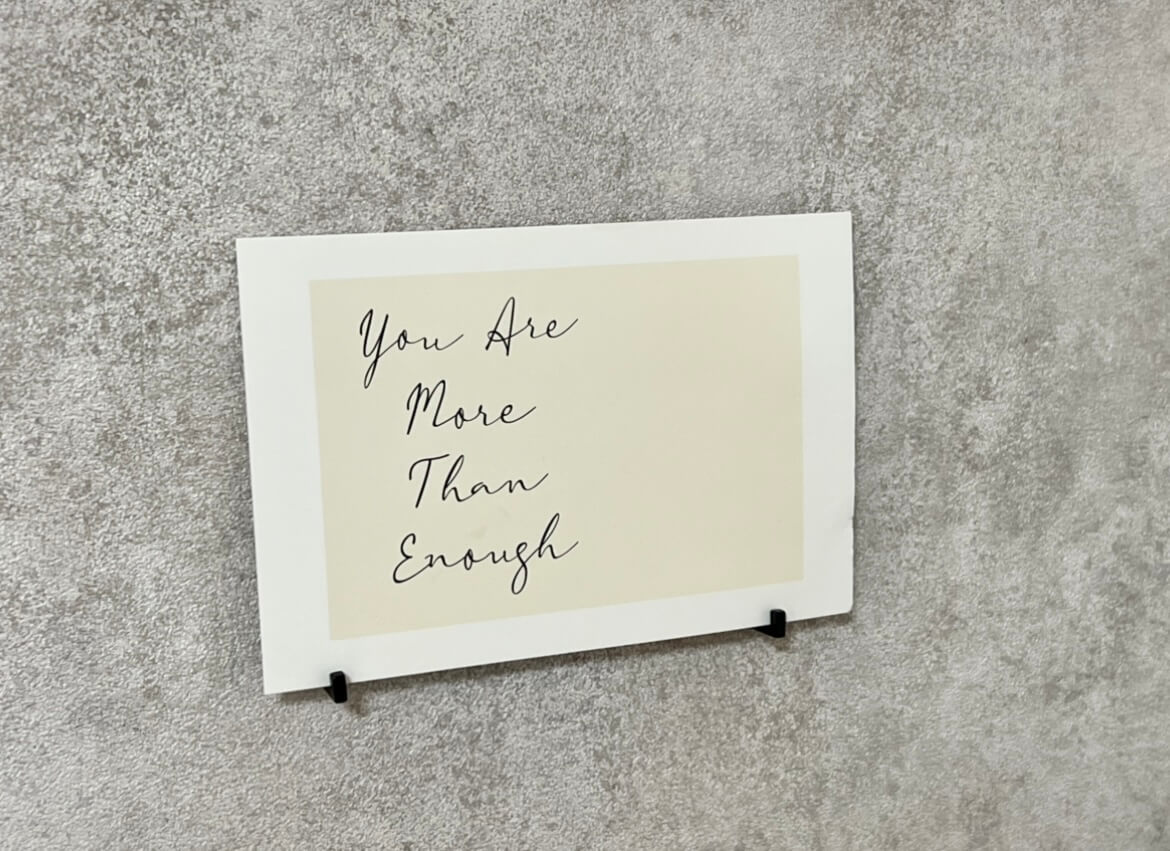 You Are
More
Than
Enough